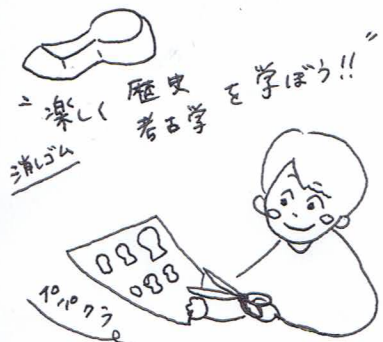 "楽しく 歴史
考古学 を学ぼう!!"
消しゴム
ペパクラ